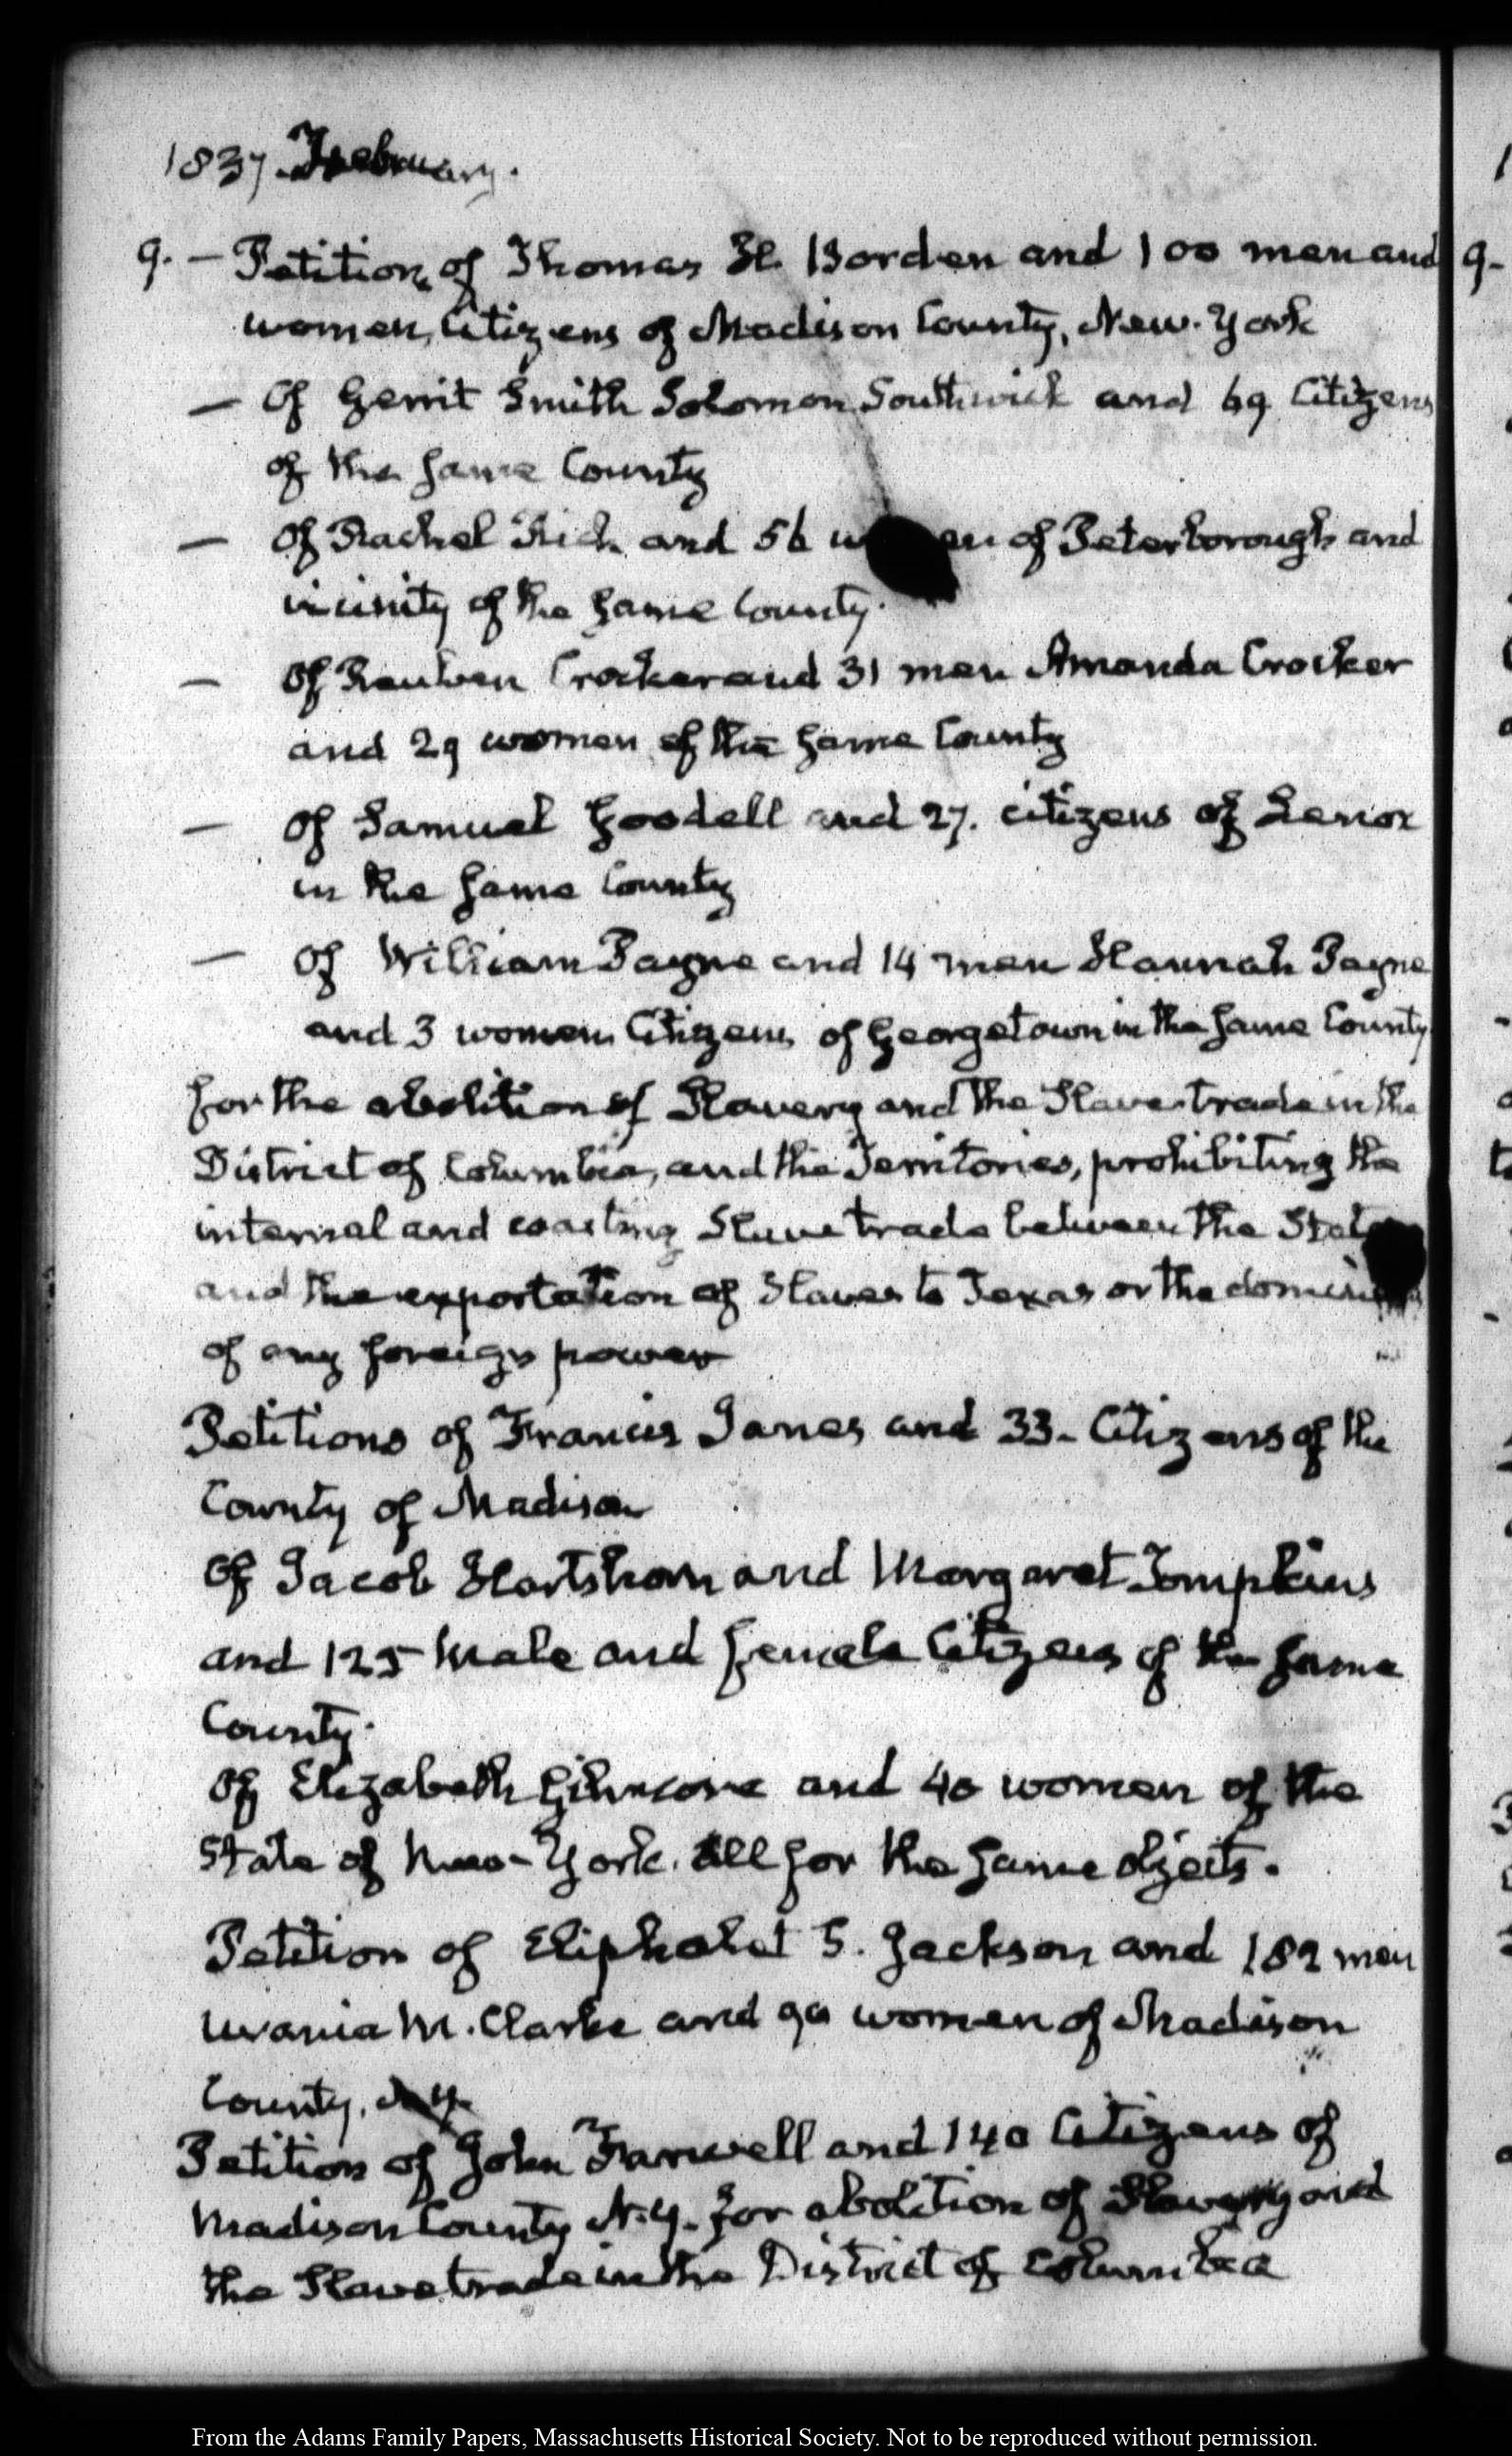 1837. February.
9. — Petition of Thomas H. Borden and 100 men and
women, Citizens of Madison County, New-York
— Of Gerrit Smith Solomon Southwick and 69 Citizens
of the same County
— Of Rachel Rich and 56 of Peterborough and
vicinity of the same County.
— Of Reuben Crocker and 31 men Amanda Crocker
and 29 women of the same County
— Of Samuel Goodell and 27. citizens of Lenox
in the same County
— Of William Payne and 14 men Hannah Payne
and 3 women Citizens of Georgetown in the same County
for the abolition of Slavery and the Slave trade in the
District of Columbia, and the Territories, prohibiting the
internal and coasting Slave trade between the
and the exportation of Slaves to Texas or the
of any foreign power
Petitions of Francis Janes and 33 - Citizens of the
County of Madison
Of Jacob Hartshorn and Margaret Tompkins
and 125 Male and female Citizens of the same
County.
Of Elizabeth and 40 women of the
State of New-York. All for the same objects.
Petition of Eliphalet S. Jackson and 182 men
Urania M. Clarke and 90 women of Madison
County. N.Y.
Petition of John Farwell and 140 Citizens of
Madison County N.Y. for abolition of Slavery and
the Slave trade in the District of Columbia
9 -
From the Adams Family Papers, Massachusetts Historical Society. Not to be reproduced without permission.